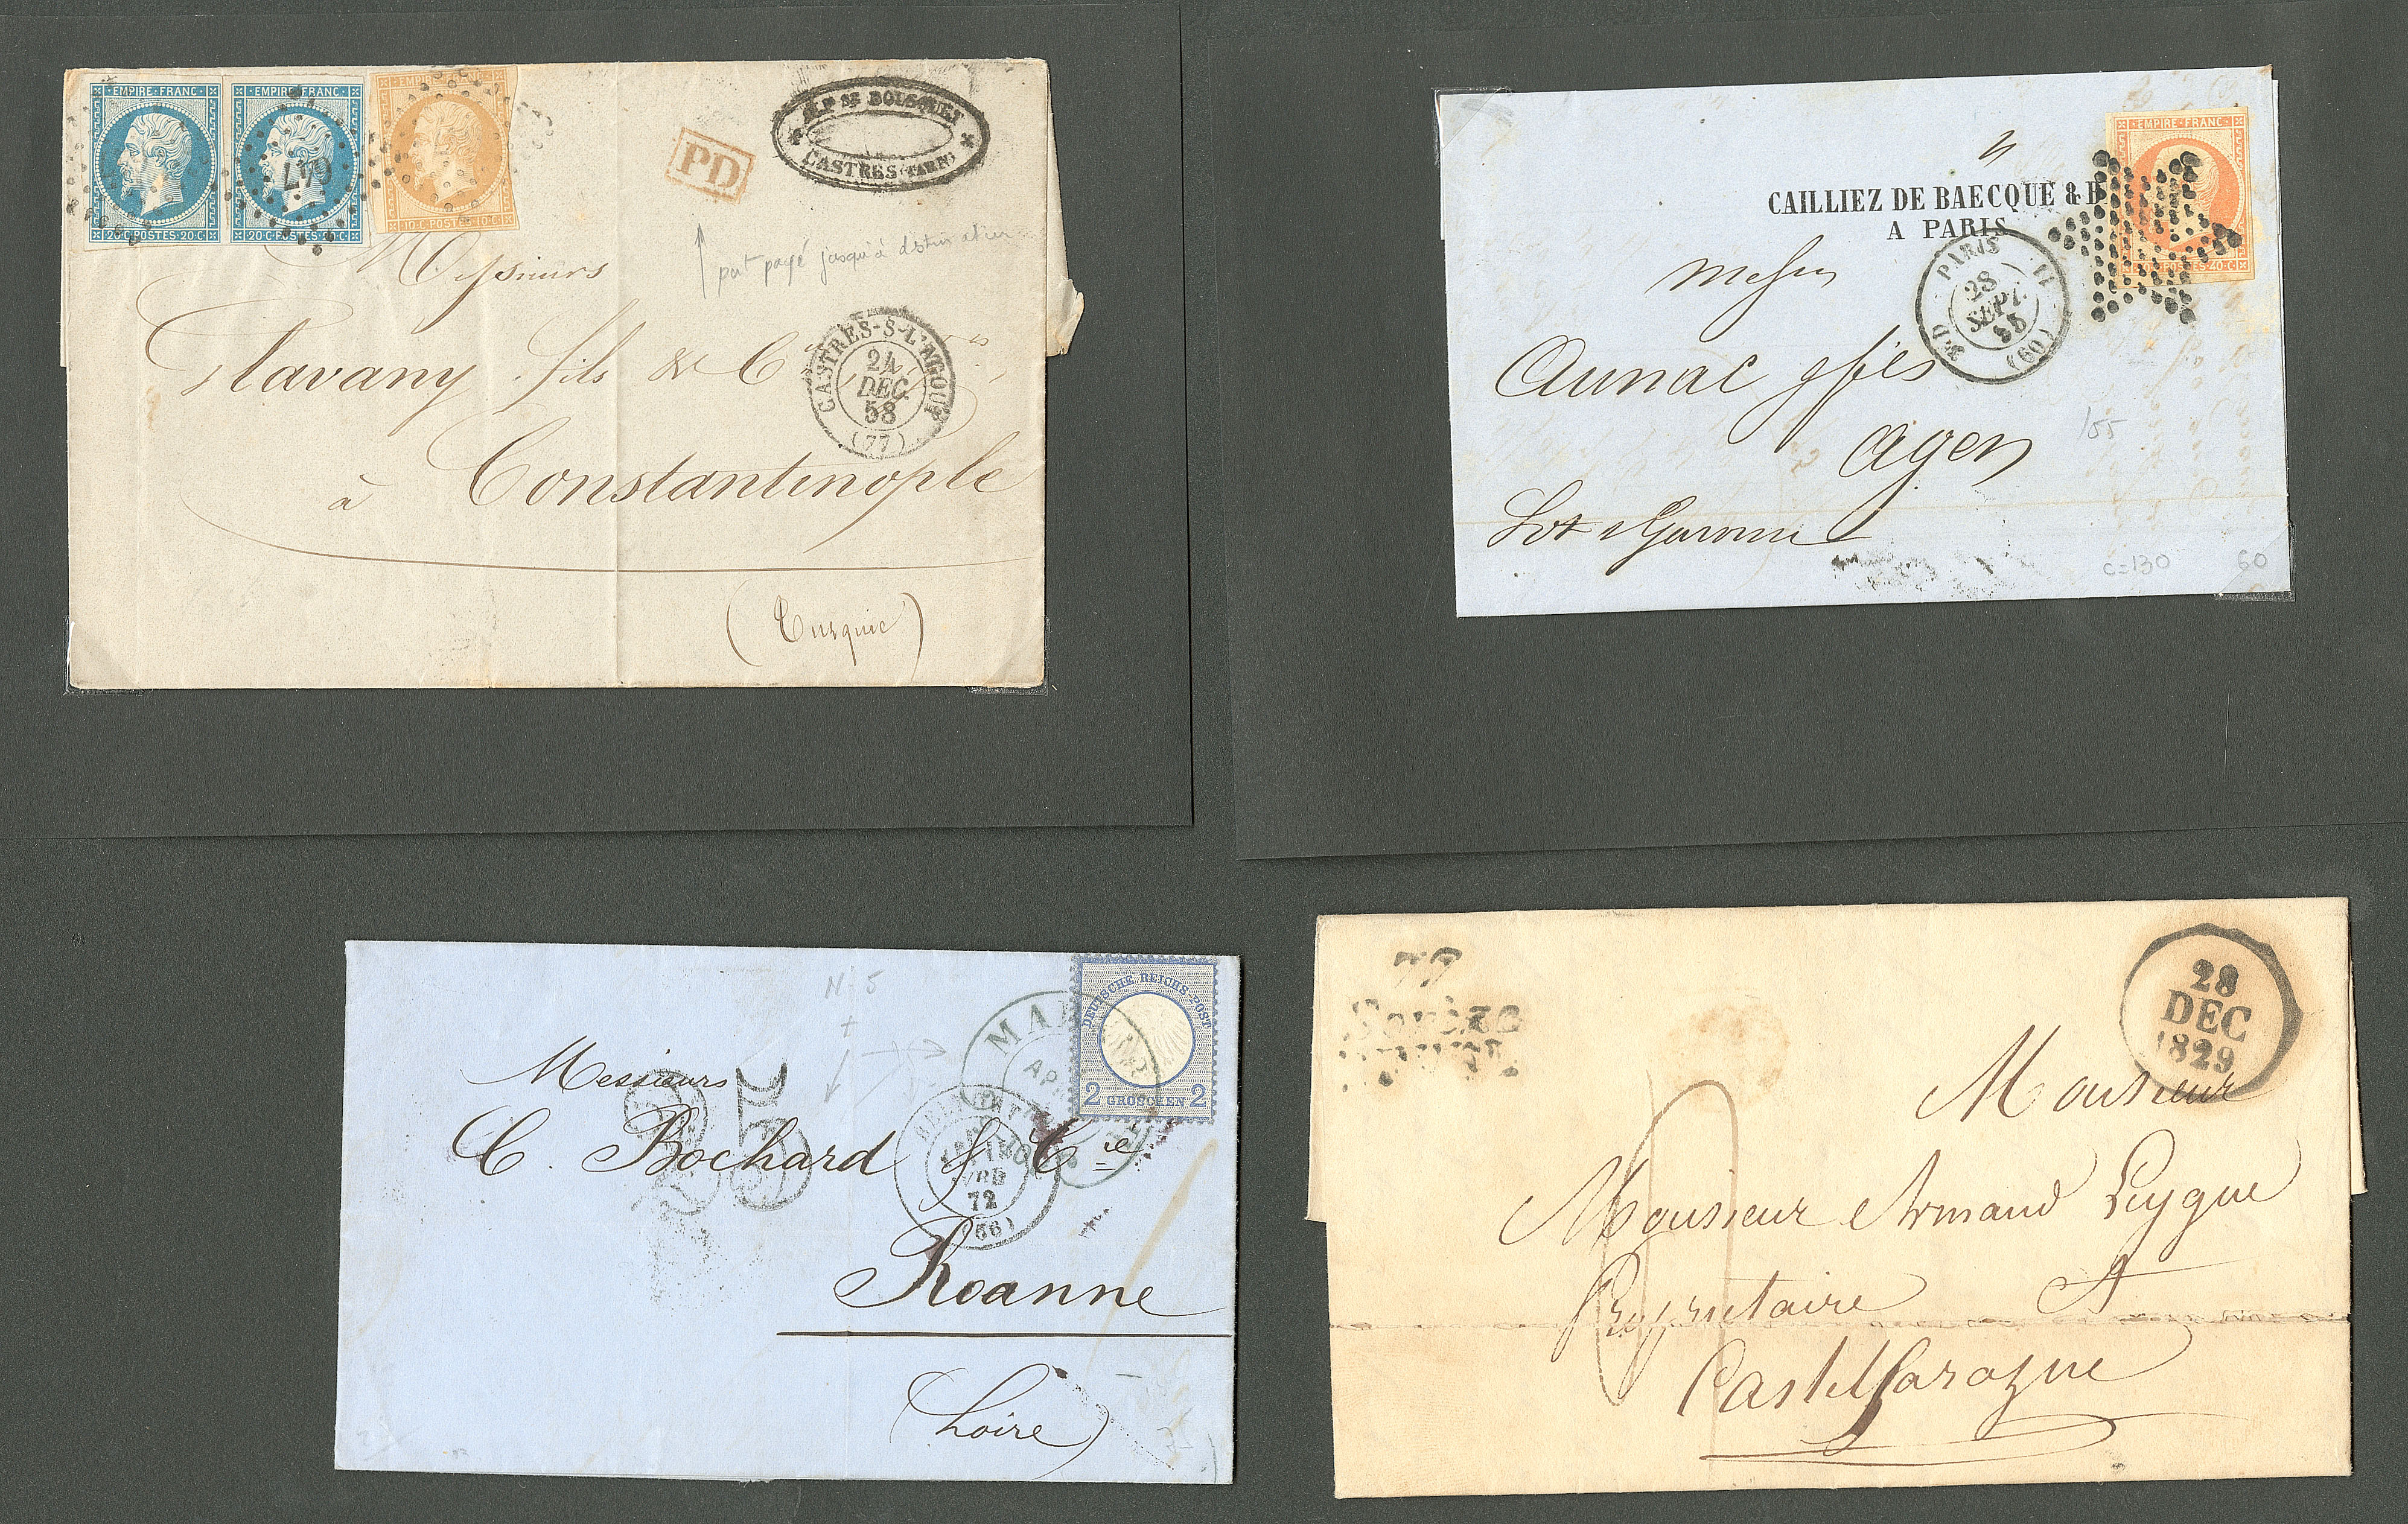 EMPIRE · FRANC ·
20 · C · POSTES · 20 · C ·
EMPIRE · FRANC ·
20 · C · POSTES · 20 · C ·
EMPIRE · FRANC ·
10 · C · POSTES · 10 · C ·
647
PD
CASTRES (TARN)
port payé jusqu'à destination
Messieurs
CASTRES-S-L'AGOUT
24
DEC.
58
(77)
fils & Cie
à Constantinople
(Turquie)
EMPIRE · FRANC ·
POSTES 40 · C ·
CAILLIEZ DE BAECQUE & D
A PARIS
PARIS
28
SEPT.
55
(60)
Aunac & fils
Agen
155
Lot & Garonne
c=130
60
DEUTSCHE REICHS-POST
2 GROSCHEN 2
N. 5
+
MA
AP
Messieurs
25
C. Bochard & Cie
72
Roanne
(Loire)
79
Sorèze
28
DEC
1829
Monsieur
Monsieur Armand Peygue
Propriétaire A
Castelsarazine